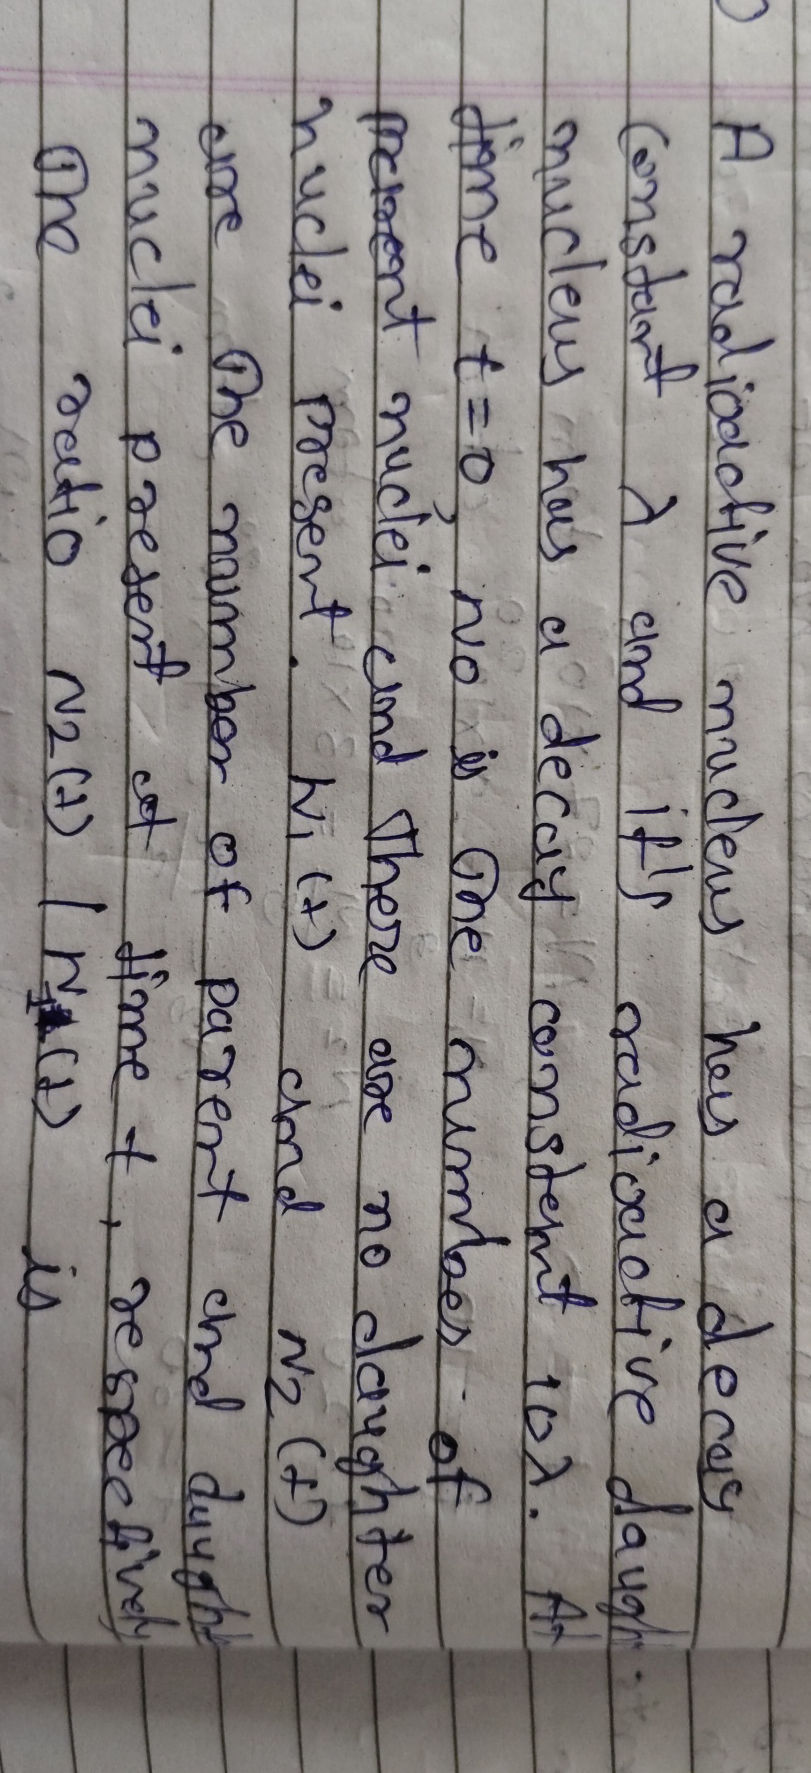 A radioactive nucleus has a decay
constant λ and it's radioactive daugh
nucleus has a decay constant 10λ. At
time t=0, No is the number of
parent nuclei and there are no daughter
nuclei present. N1(t) and N2(t)
are the number of parent and daught
nuclei present at time t, respectively
The ratio N2(t) / N1(t) is